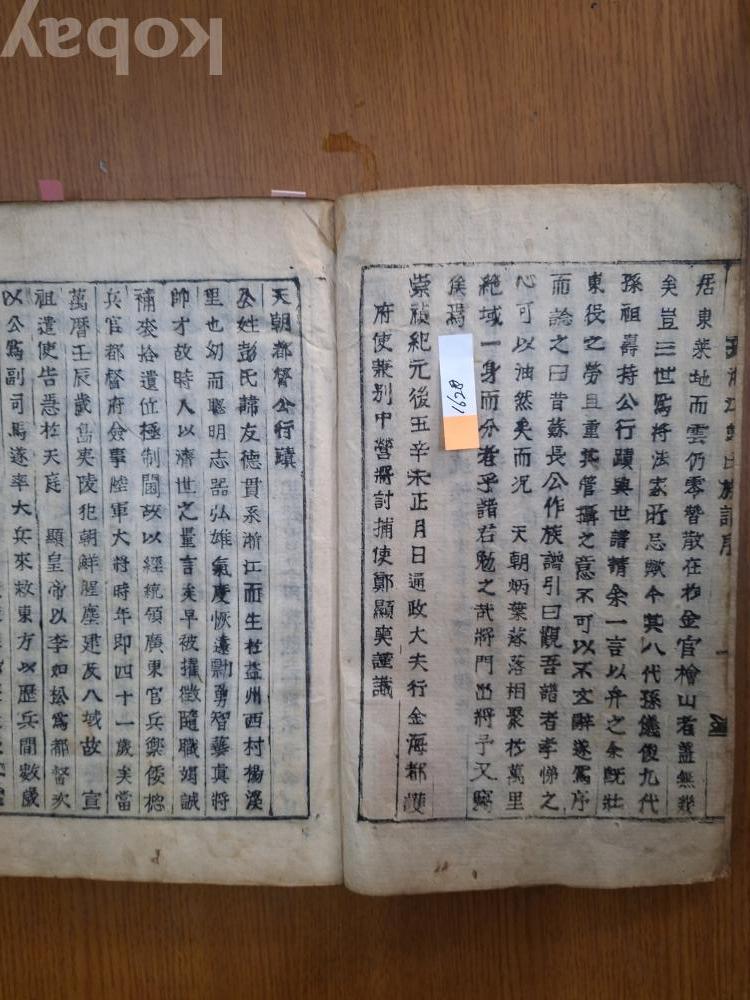 kobay
浙江彭氏族譜序
居東萊地而雲仍零替散在於金官檜山者蓋無幾
矣豈三世爲將法家所忌歟今其八代孫儀俊九代
孫祖壽持公行蹟與世譜請余一言以弁之余旣壯
東役之勞且重其管攝之意不可以不文辭遂爲序
而論之曰昔蘇長公作族譜引曰觀吾譜者孝悌之
心可以油然矣而况 天朝炳葉蔆落相聚於萬里
絶域一身而分者乎諸君勉之哉將門出將予又竊
俟焉
崇禎紀元後五辛未正月日通政大夫行金海都護
府使兼別中營將討捕使鄭顯奭謹識
1628
天朝都督公行蹟
公姓彭氏諱友德貫系浙江而生於益州西村楊溪
里也幼而聰明志器弘雄氣度恢遠勳勇智藝眞將
帥才故時人以濟世之量言矣早被擢徵隨職竭誠
補袞拾遺位極制閫故以經統領廣東官兵禦倭摠
兵官都督府僉事陸軍大將時年即四十一歲矣當
萬曆壬辰歲島夷陵犯朝鮮腥塵建及八域故 宣
祖遣使告急於天庭 顯皇帝以李如松爲都督次
以公爲副司馬遂率大兵來救東方以歷兵間數歲